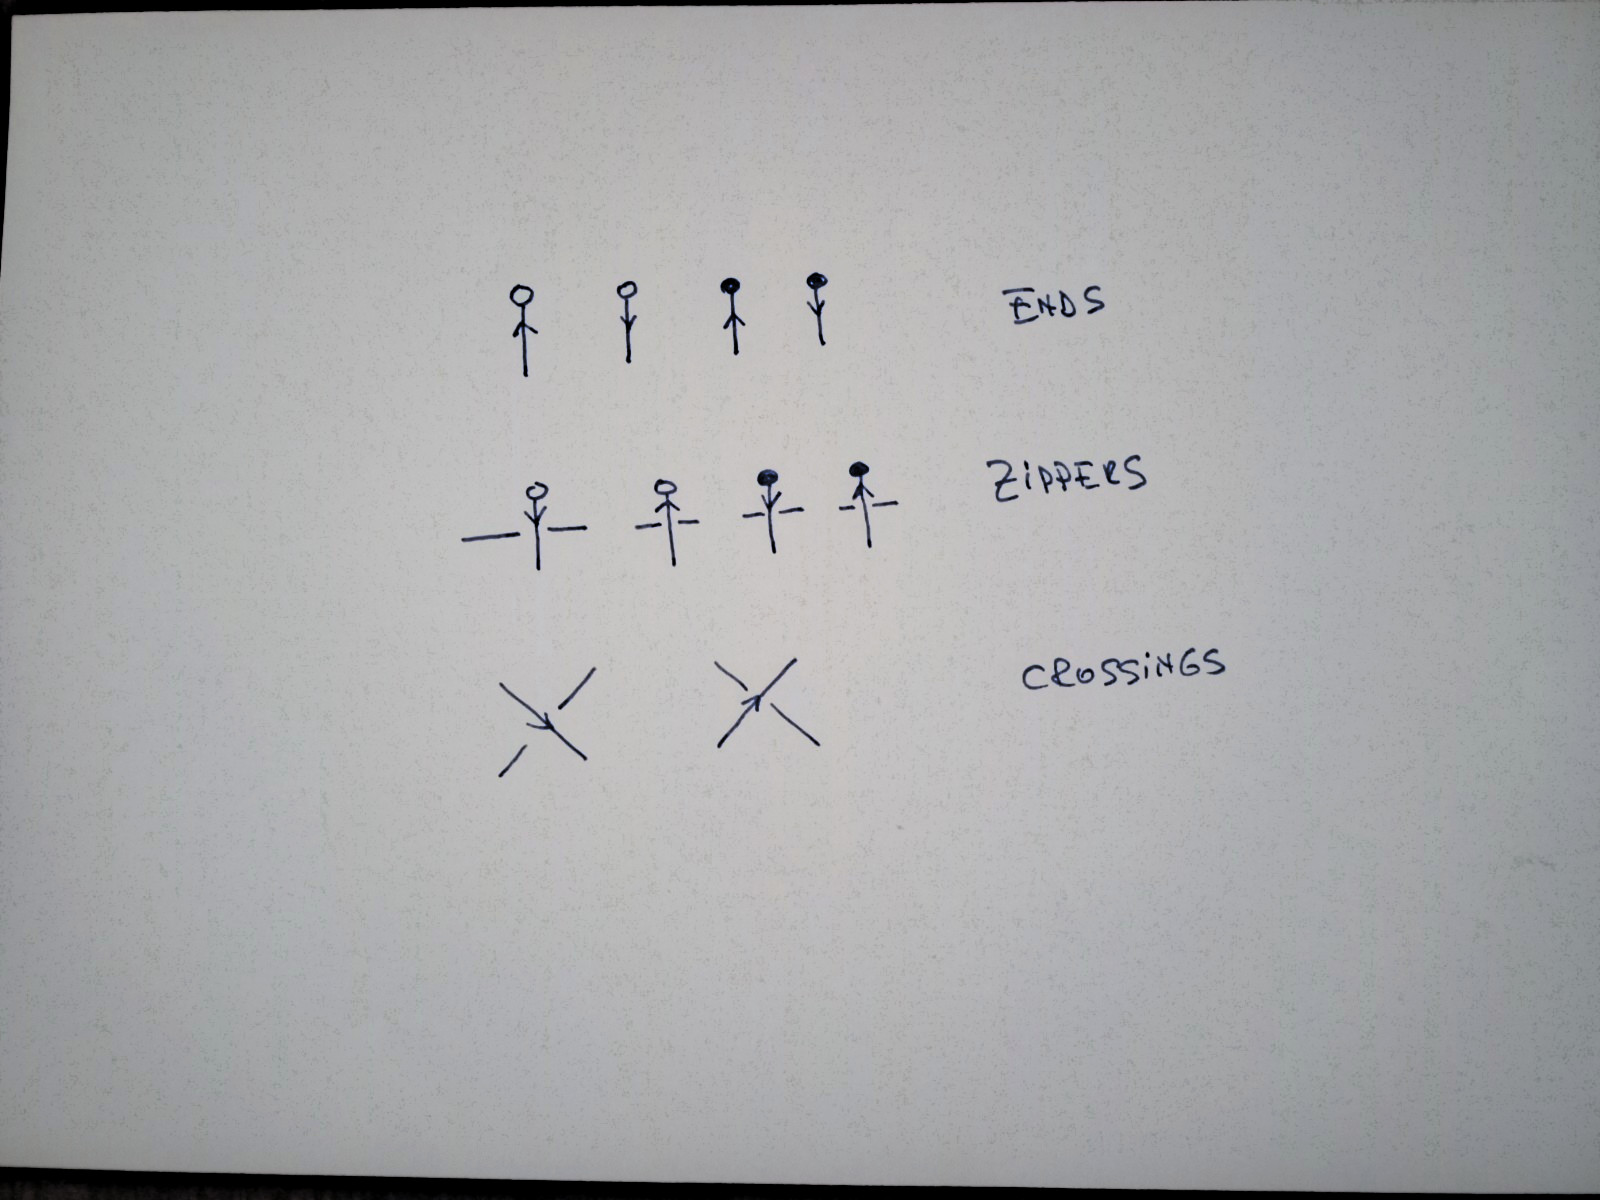 ENDS
ZiPPERS
CROSSiNGS